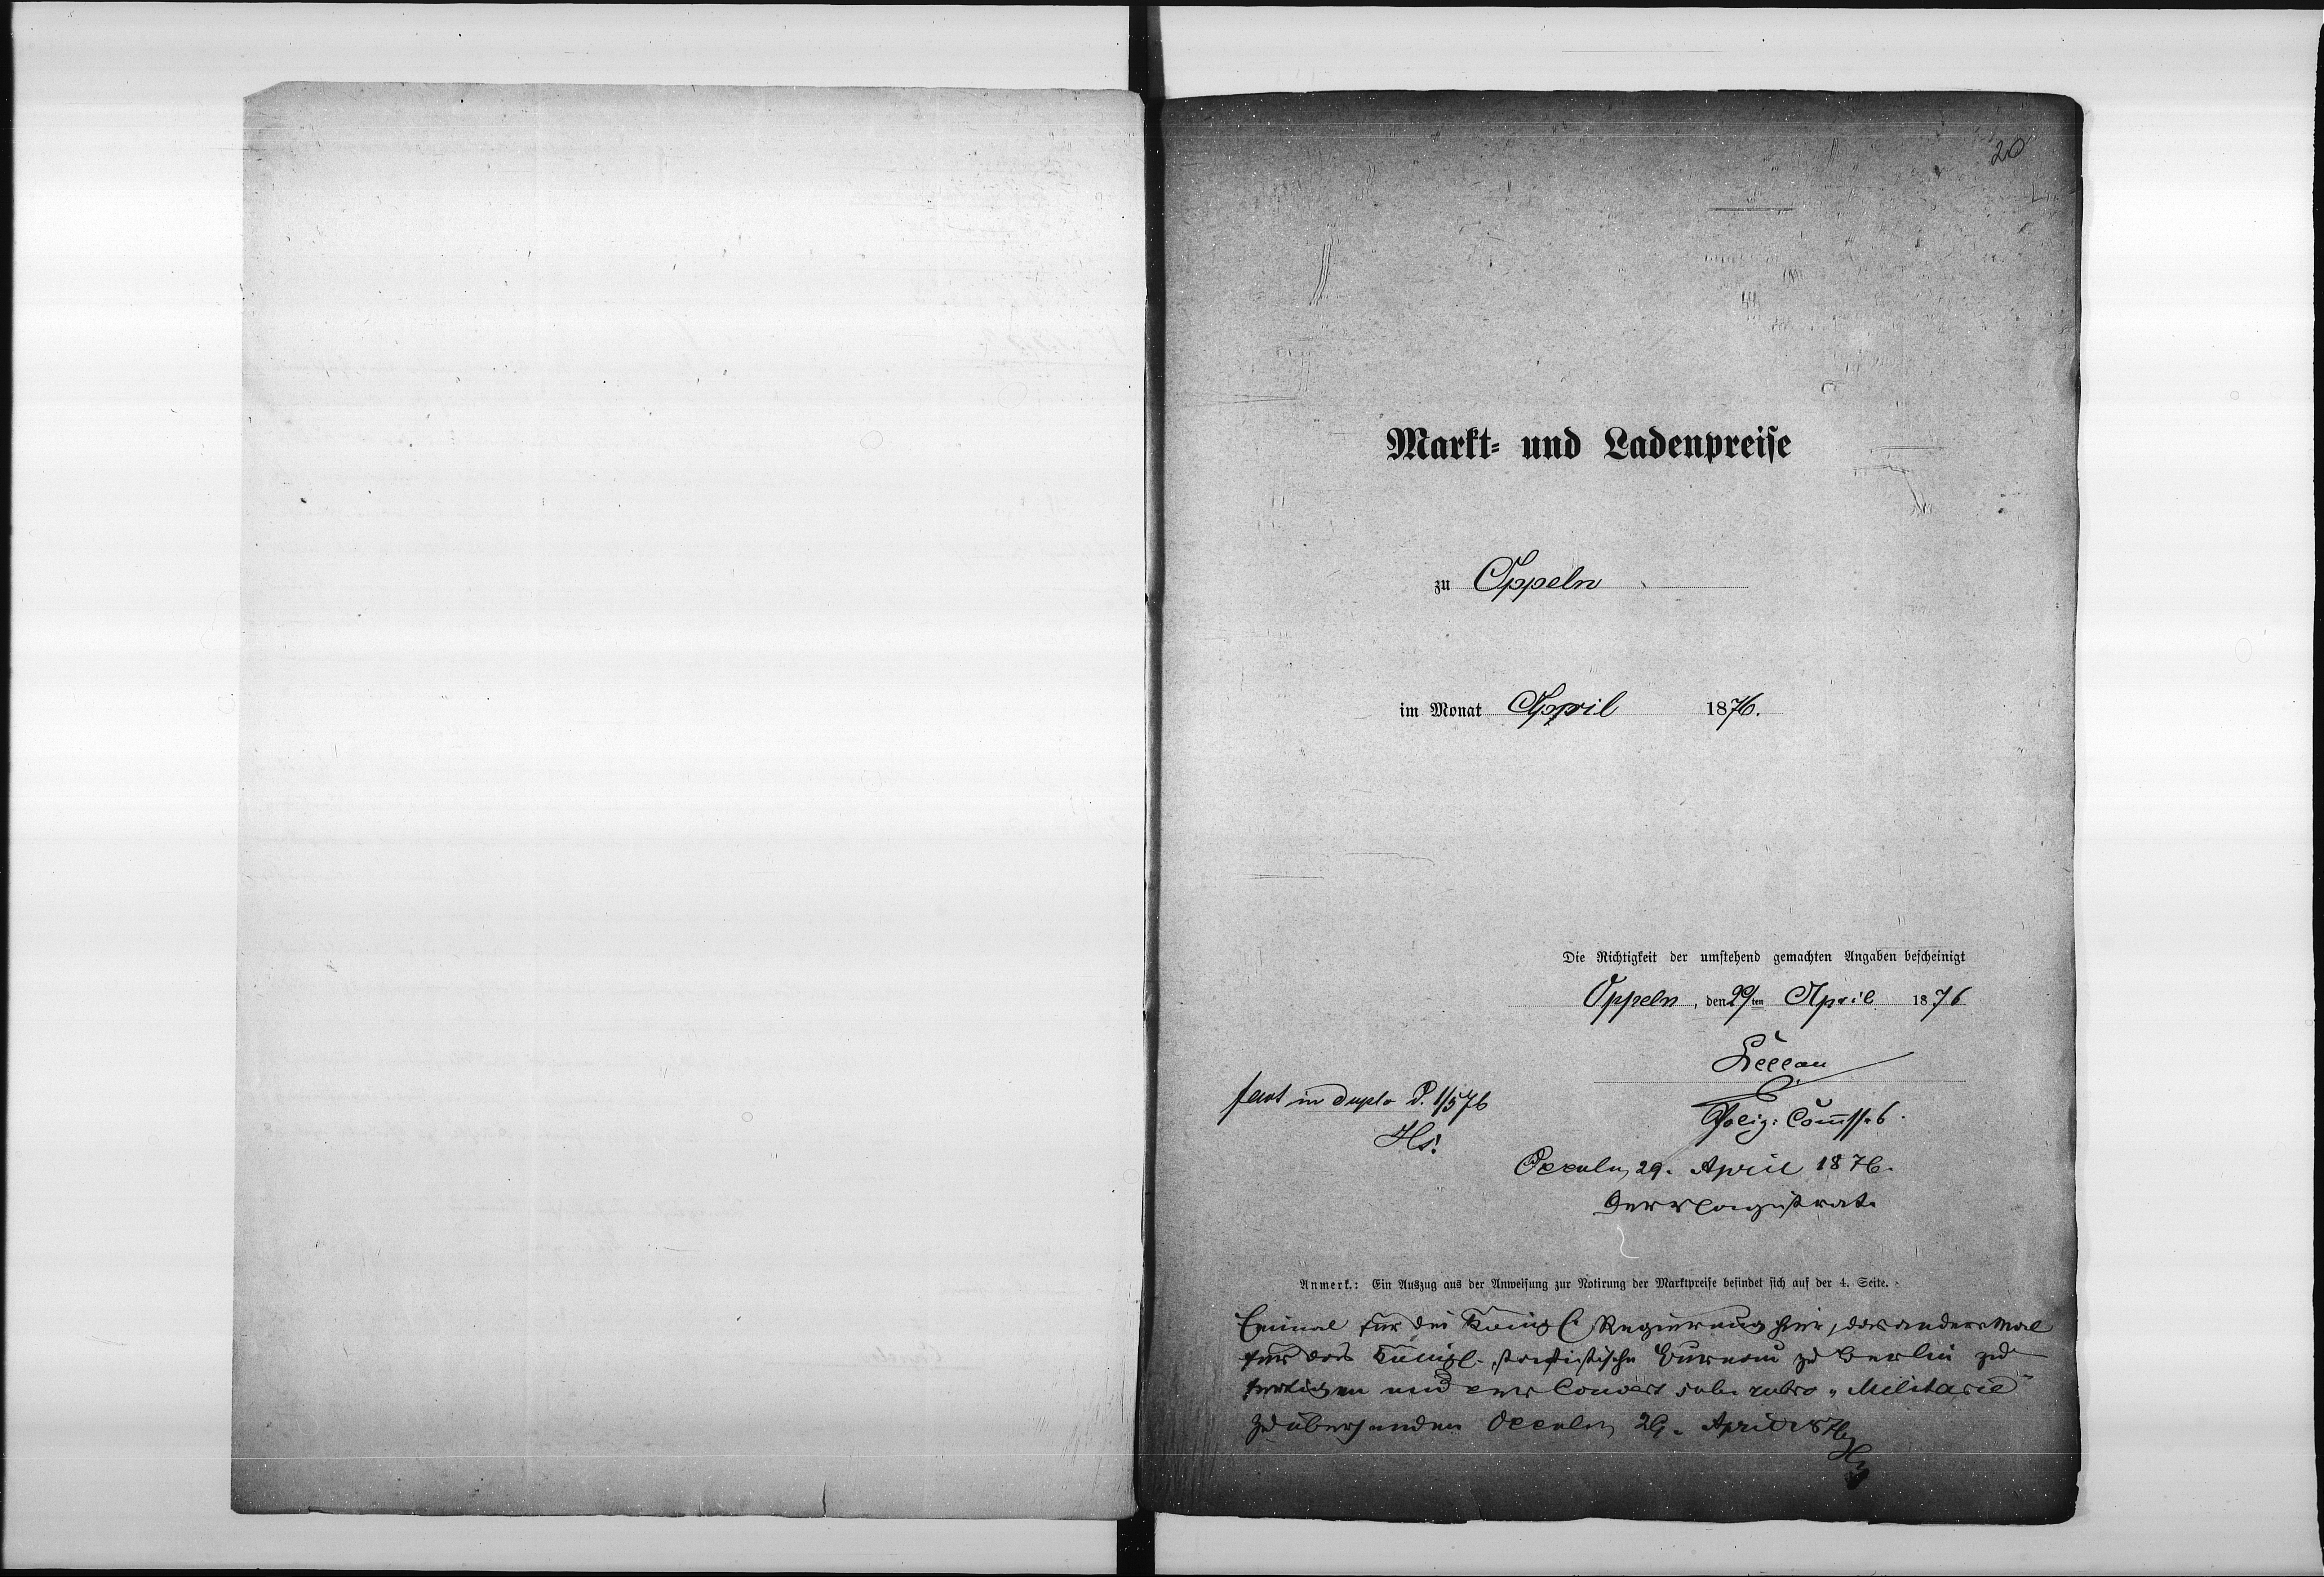 20
Markt- und Ladenpreise
zu Oppeln
im Monat April 1876.
Die Richtigkeit der umstehend gemachten Angaben bescheinigt
Oppeln, den 29ten April 1876
Poliz: Commss.
fact in duplo d. 1/5 76
Hs:
Oppeln, 29. April 1876.
Der Magistrat.
Anmerk.: Ein Auszug aus der Anweisung zur Notirung der Marktpreise befindet sich auf der 4. Seite.
Einmal für die Königl. Regierung hier, das andere Mal
für das Königl. statistische Bureau zu Berlin zu
fertigen und per Couvert sub rubro „Militaria"
zu übersenden Oppeln, 29. April 1876